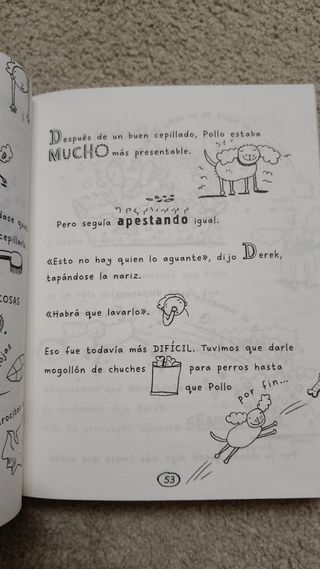 Después de un buen cepillado, Pollo estaba
MUCHO más presentable.
Pero seguía apestando igual.
«Esto no hay quien lo aguante», dijo Derek,
tapándose la nariz.
«Habrá que lavarlo».
Eso fue todavía más DIFÍCIL. Tuvimos que darle
mogollón de chuches para perros hasta
que Pollo
por fin...
53